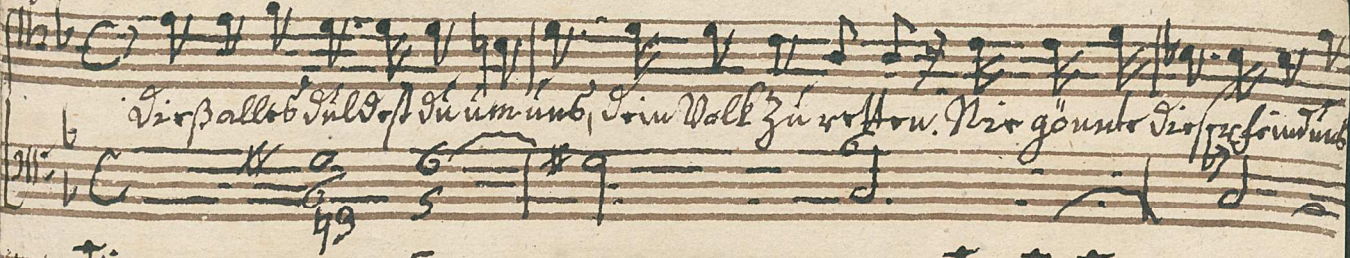 Dieß alles duldest du um uns, dein Volk zu retten. Nie gönnte dieser feind uns
6 6 6
5